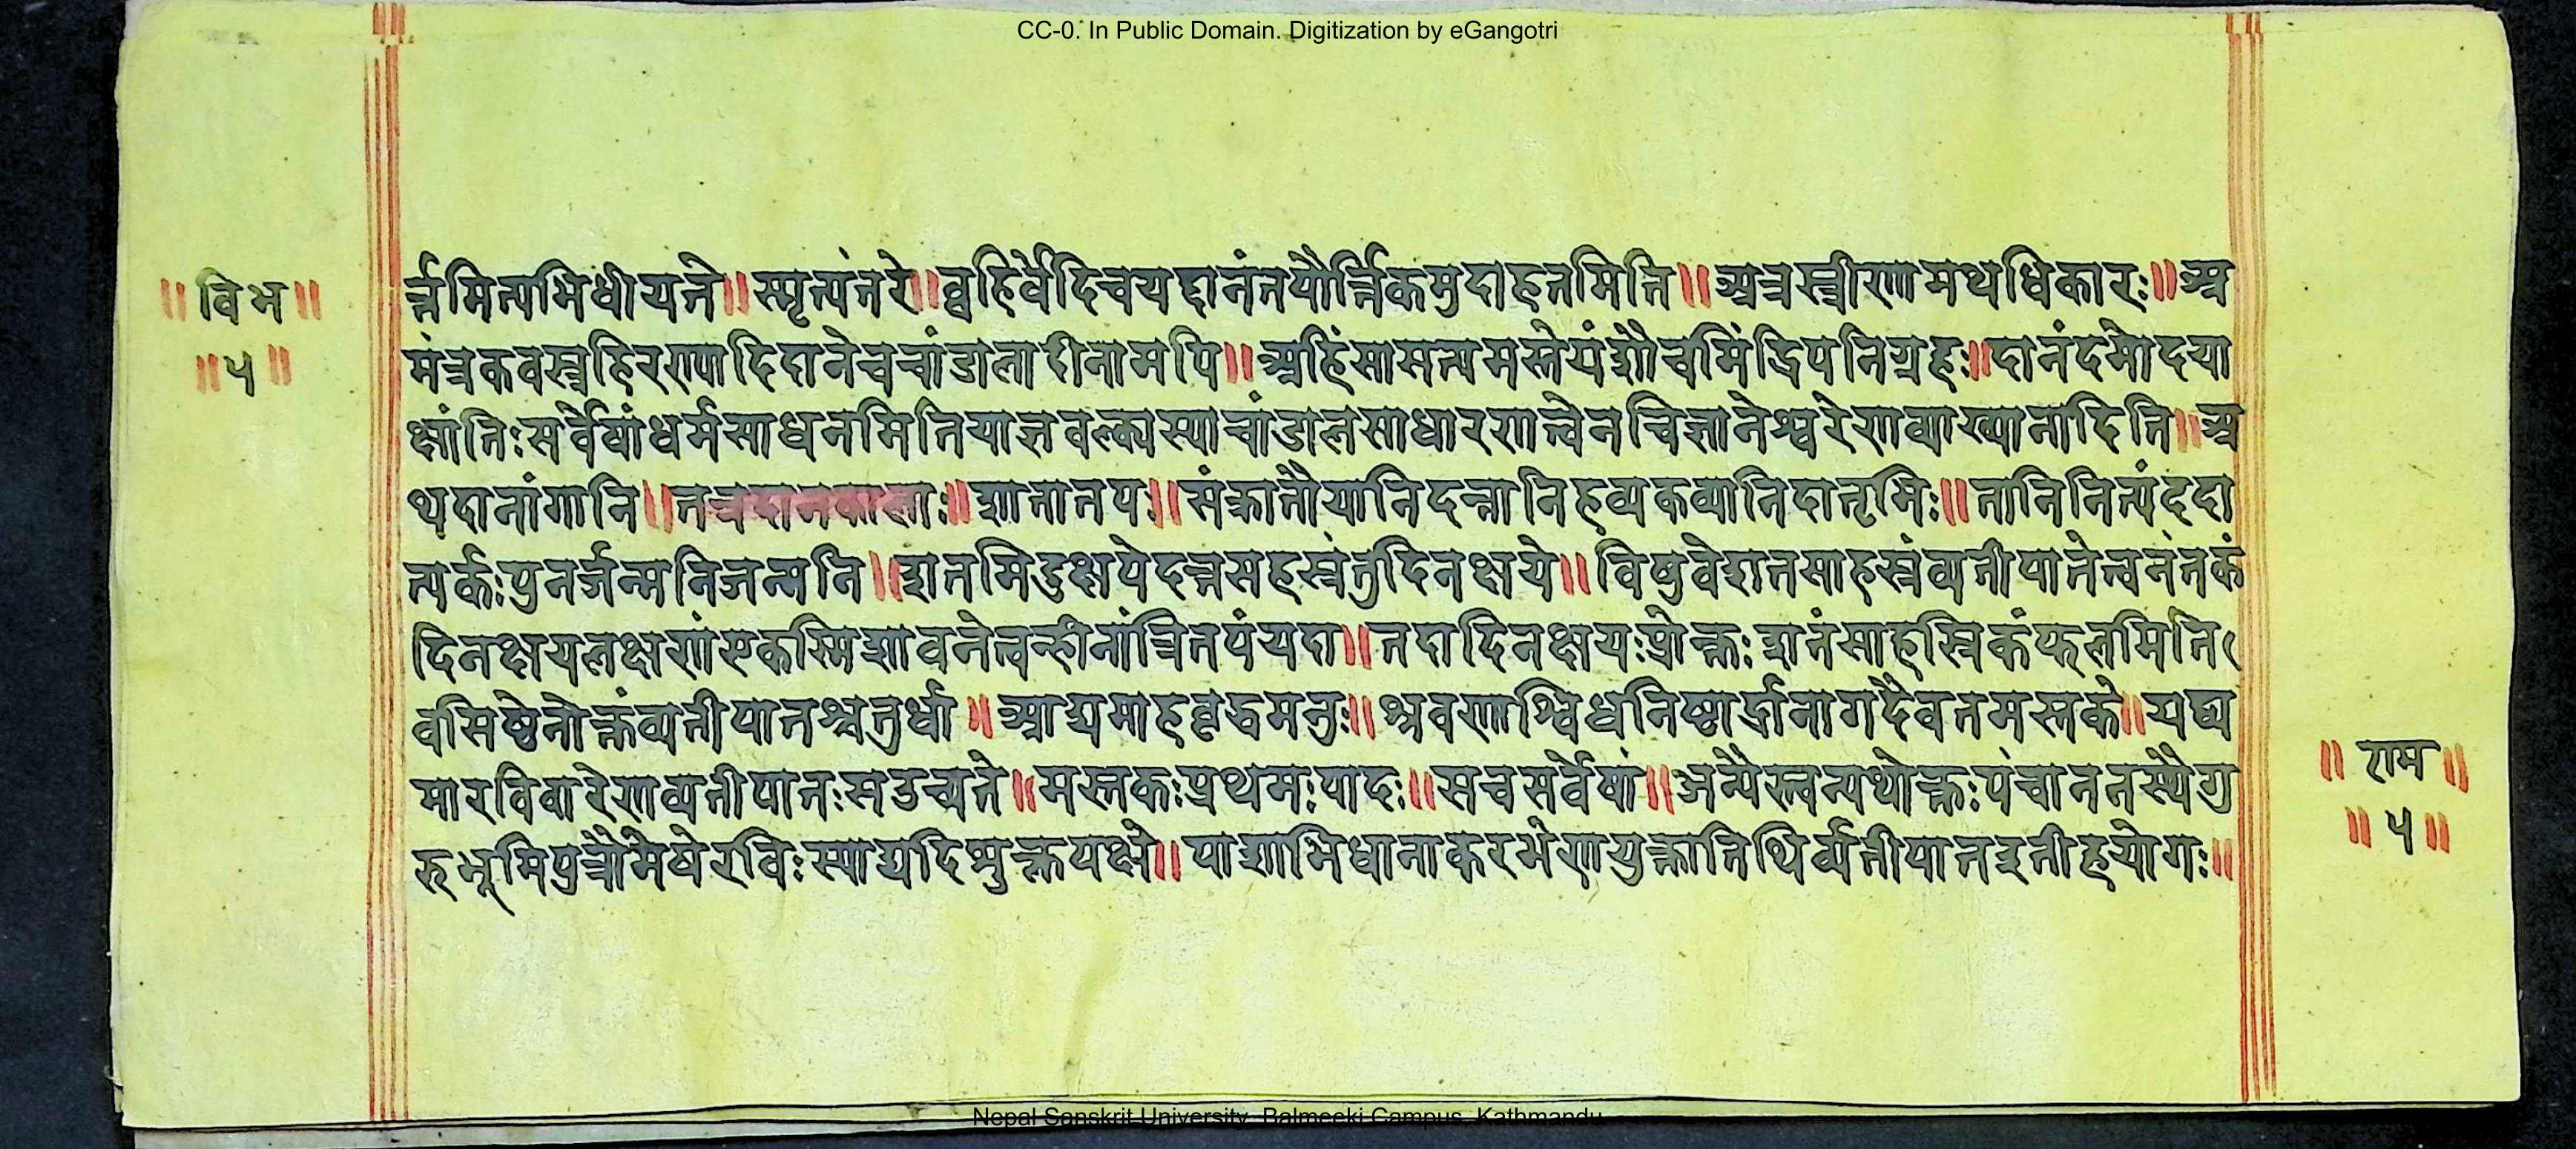 CC-0. In Public Domain. Digitization by eGangotri
॥ विभ ॥
॥ ५ ॥
र्त्तमित्यभिधीयते॥स्मृत्यंतरे॥वहिर्वेदिचयद्दानंतयौर्त्तिकमुदाहृतमिति॥अत्रस्त्रीणामथधिकारः॥अ
मंत्रकवस्त्रहिरण्यादिदानेचचांडालादीनामपि॥अहिंसासत्यमस्तेयंशौचमिंद्रियनिग्रहः॥दानंदमोदया
क्षांतिःसर्वेषांधर्मसाधनमितियाज्ञवल्क्यस्याचांडालसाधारणत्वेनविज्ञानेश्वरेणव्याख्यानादिति॥अ
थदानांगानि॥तत्रदानकालाः॥शातातपः॥संक्रातौयानिदत्तानिहव्यकव्यानिदातृभिः॥तानिनित्यंददा
त्यर्कःपुनर्जन्मनिजन्मनि॥शतमिंदुक्षयेदत्तसहस्रंतुदिनक्षये॥विषुवेशतसाहस्रंव्यतीपातेत्वनंतकं
दिनक्षयलक्षणंएकस्मिशावनेत्वन्हीनांत्रितयंयदा॥तदादिनक्षयःप्रोक्तःशानंसाहस्रिकंफलमिति
वसिष्ठेनोक्तंव्यतीपातश्चतुर्धा॥आद्यमाहवृद्धमनुः॥श्रवणाश्विधनिष्ठार्द्रानागदैवतमस्तके॥यद्य
मारविवारेणव्यतीपातःसउच्यते॥मस्तकःप्रथमःपादः॥सचसर्वेषां॥अन्यैस्त्वन्यथोक्तःपंचाननस्थैगु
रुभूमिपुत्रौमेषेरविःस्याद्यदिशुक्तपक्षे॥पाशाभिधानाकरभेणयुक्तातिथिर्व्यतीपातइतीहयोगः॥
॥ राम ॥
॥ ५ ॥
Nepal Sanskrit University, Balmeeki Campus, Kathmandu